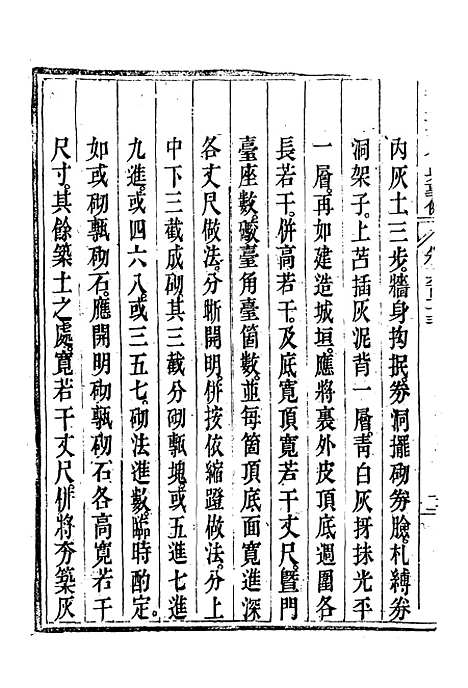 內灰土三步。牆身抅抿券洞擺砌券臉。札縛券
洞架子。上苫插灰泥背一層。靑白灰抹光平
一層。再如建造城垣。應將裏外皮頂底週圍各
長若干。併高若干。及底寬頂寬若干丈尺。曁門
臺座數。礮臺角臺箇數。並每箇頂底面寬進深
各丈尺做法。分晰開明。併按依縮蹬做法。分上
中下三截成砌。其三截分砌甎塊。或五進七進
九進。或四六八。或三五七。砌法進數。臨時酌定。
如或砌甎砌石。應開明砌甎砌石各高寬若干
尺寸。其餘築土之處。寬若干丈尺。併將夯築灰